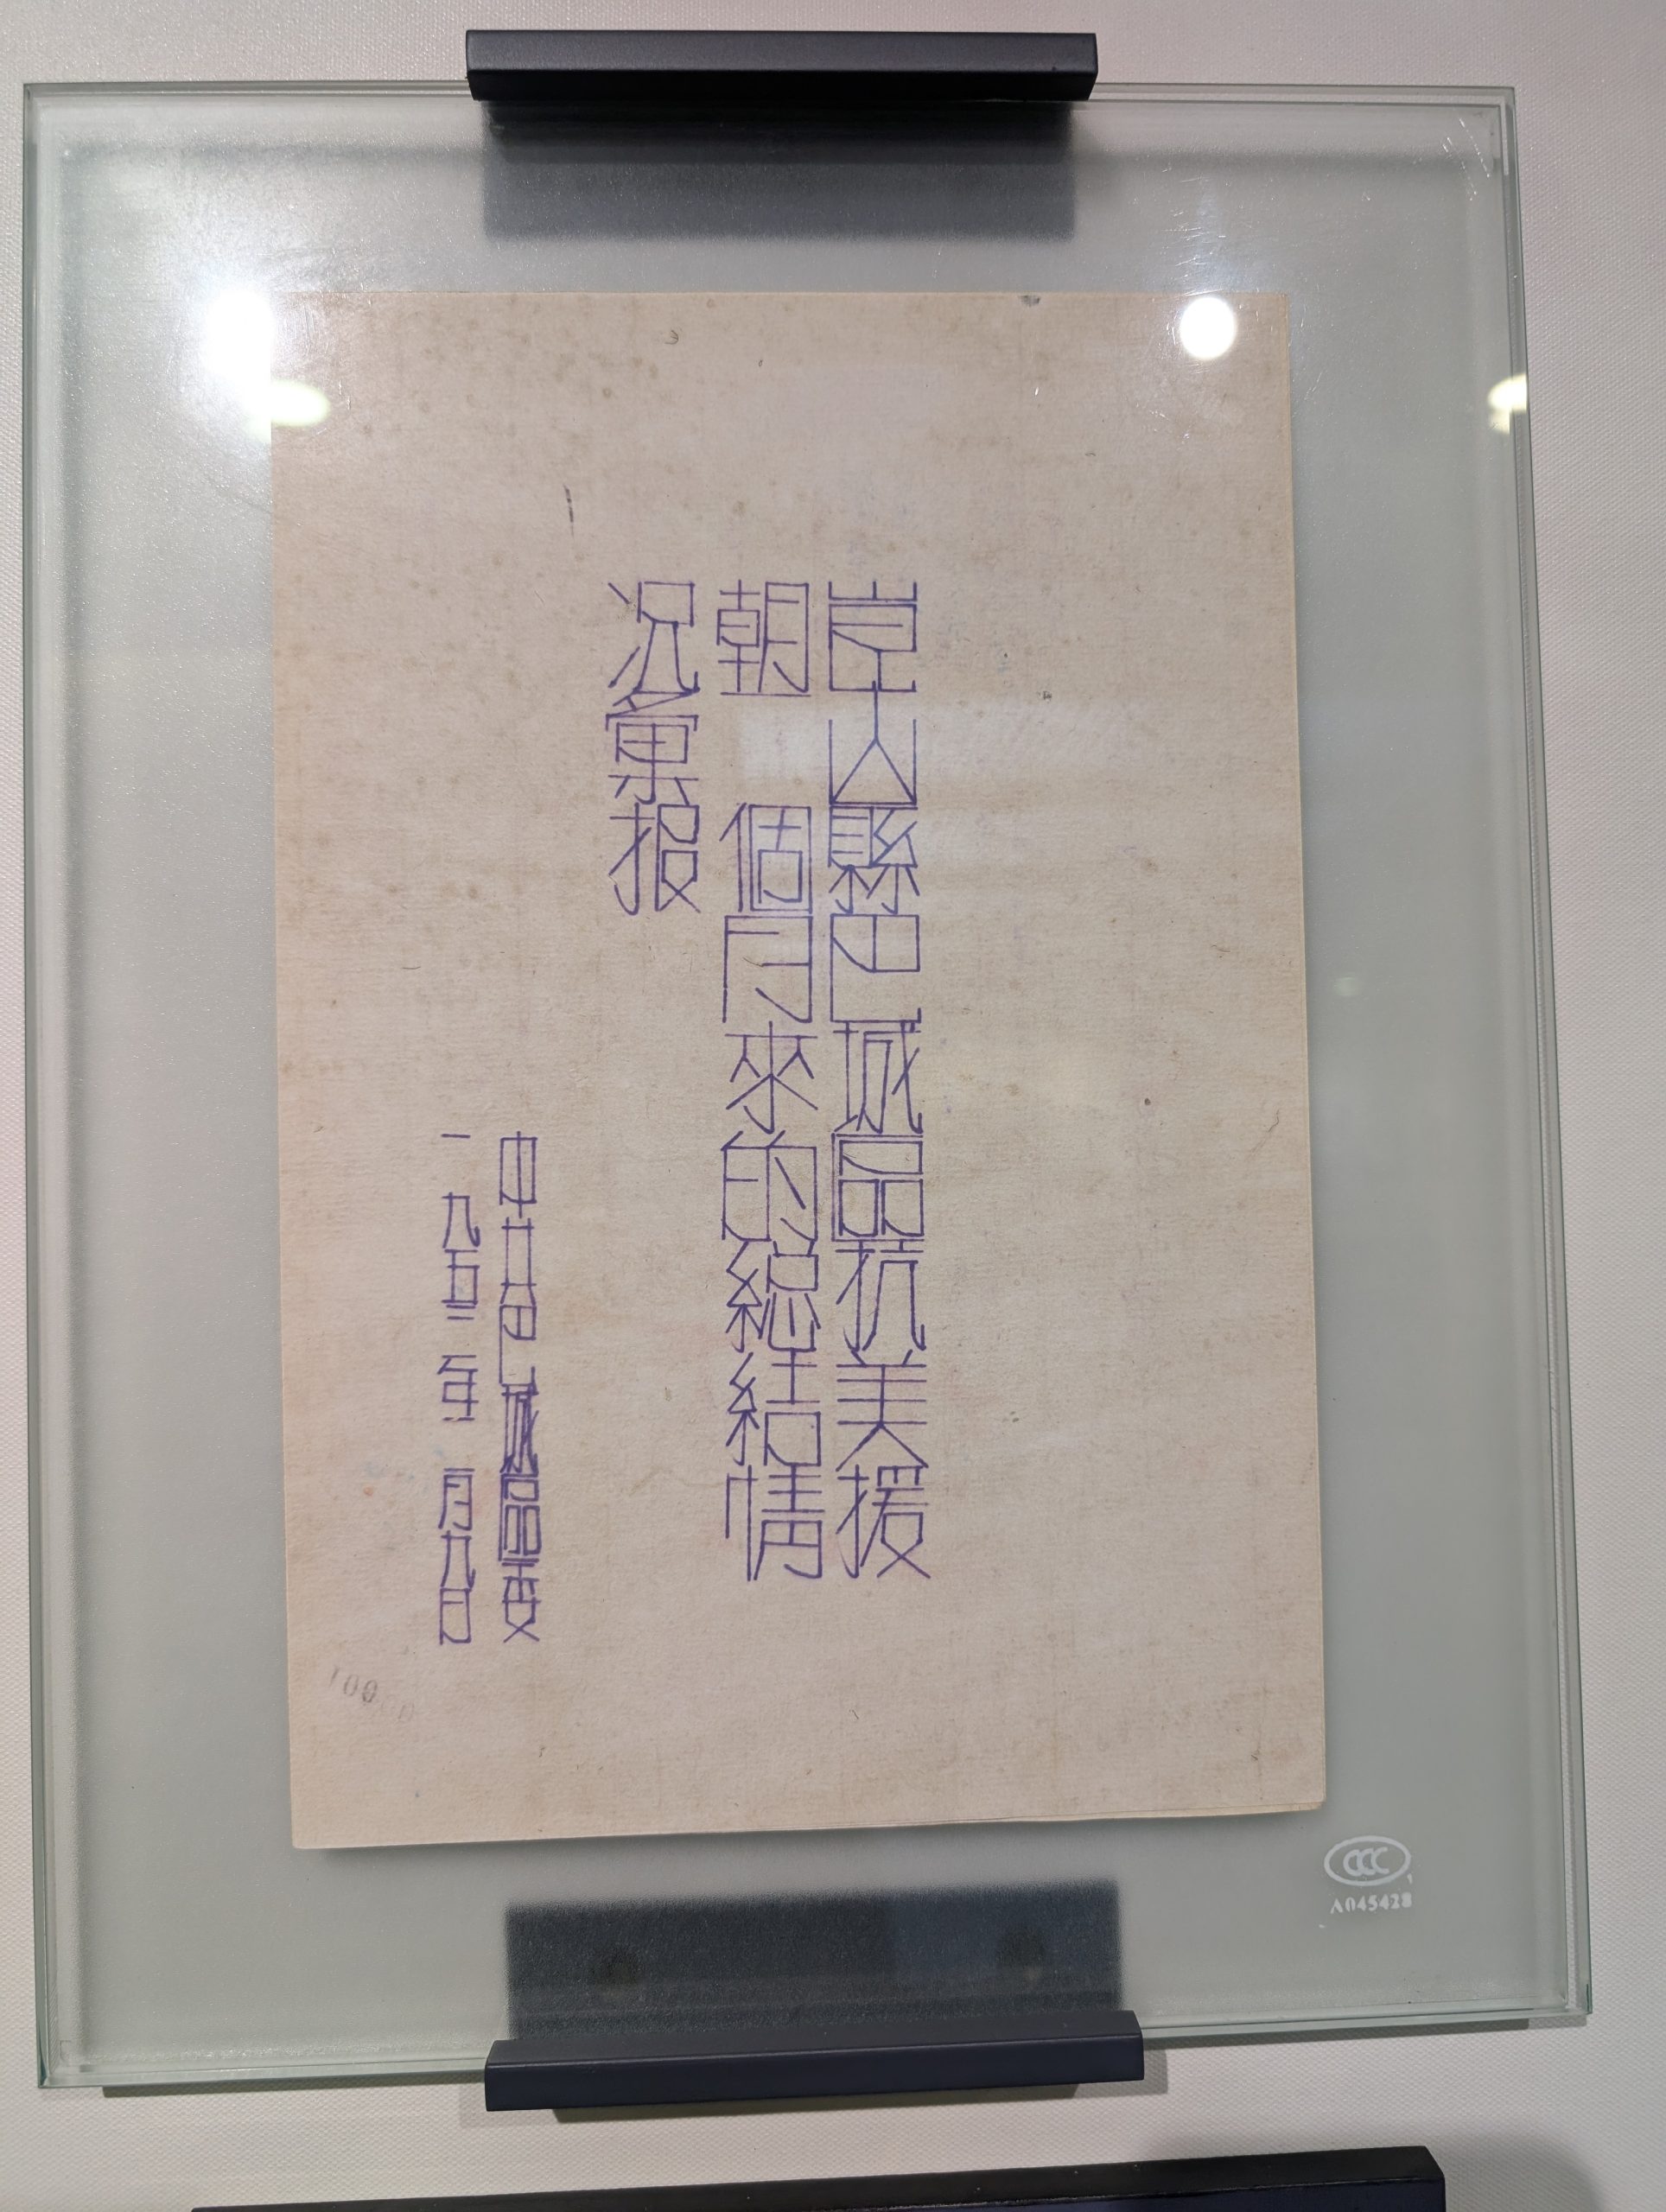 崑山縣巴城區抗美援
朝一個月來的總結情
况彙报
中共巴城區委
一九五二年二月九日
CCC
A045428